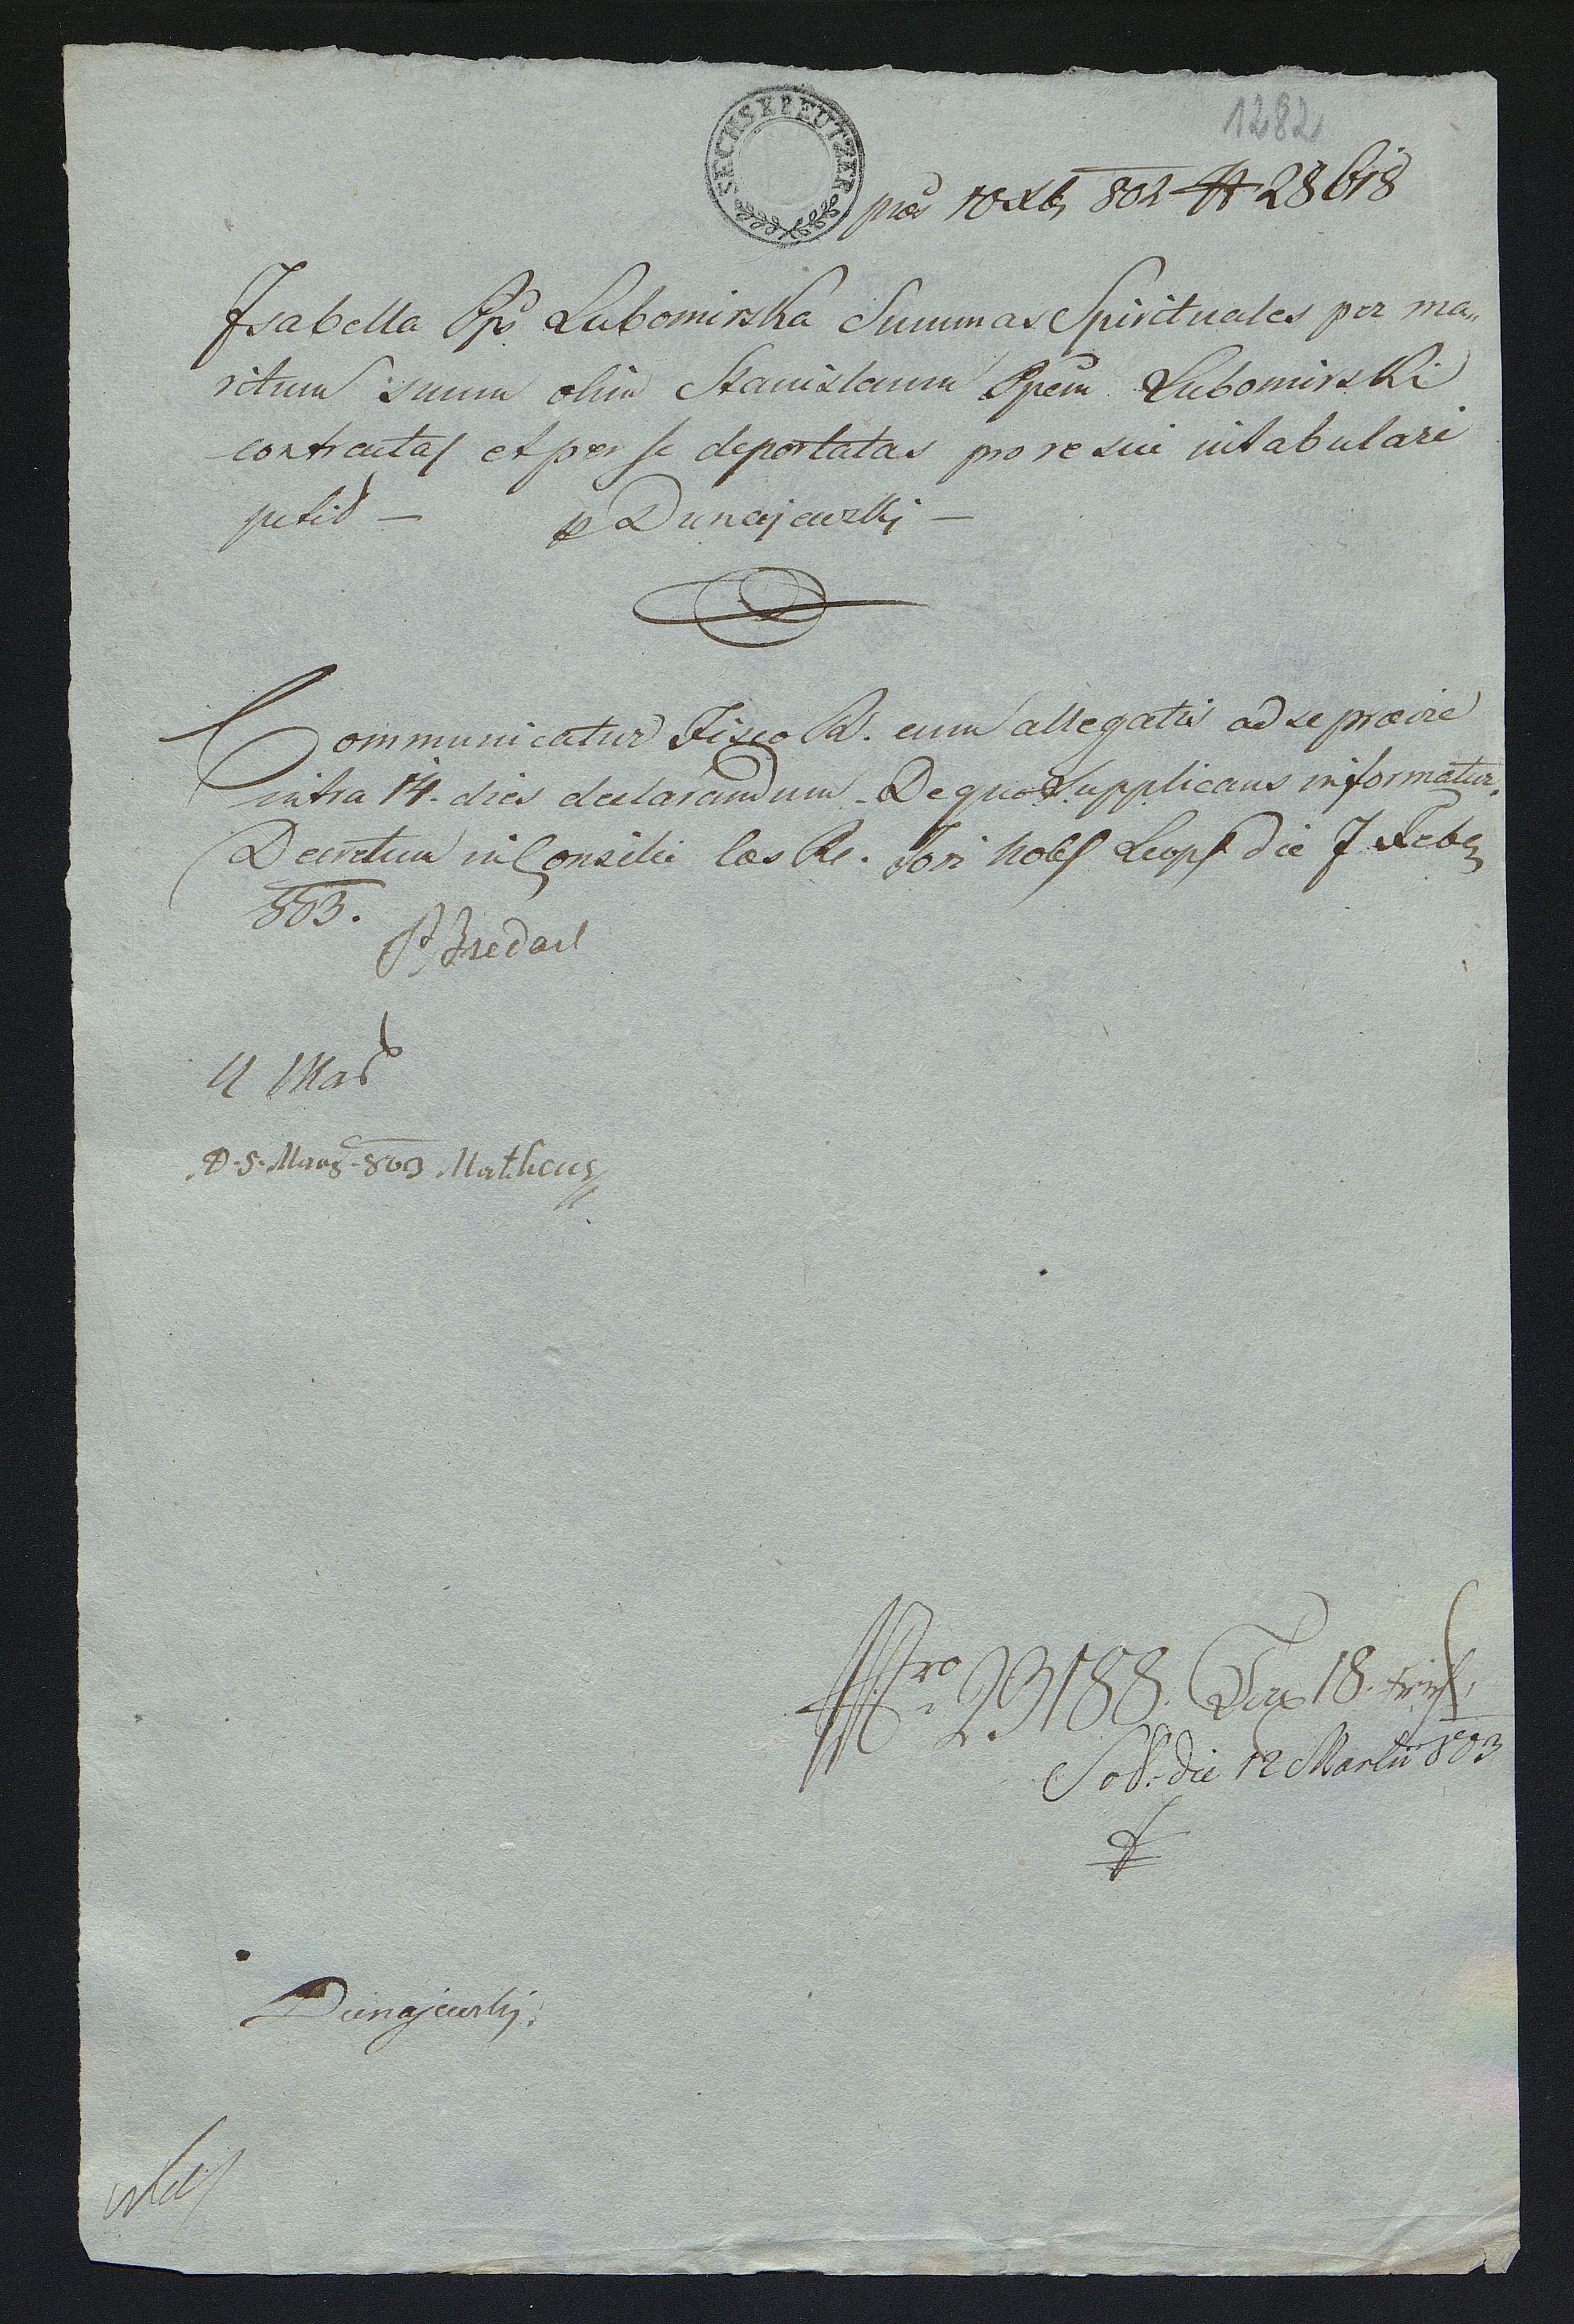 1282
SECHS KREUTZER
præs 10 Xb 802 # 28618
Isabella Ppss Lubomirska Summas Spirituales per ma„
ritum suum olim Stanislaum Ppem Lubomirski
contractas et per se deportatas pro re sui intabulari
petit — p Dunajewski —
Communicatur Fisco R. cum allegatis ad se prævie
intra 14. dies declarandum. De quo Supplicans informatur.
Decretum in Consilio Cæs Re. Fori Nobl Leopl die 7 Feb
803.
4 Mar
D. 5. Marz. 803 Matheus
Nro 29188. Tax 18.
Sol. die 12 Martii 803
Dunajewski.